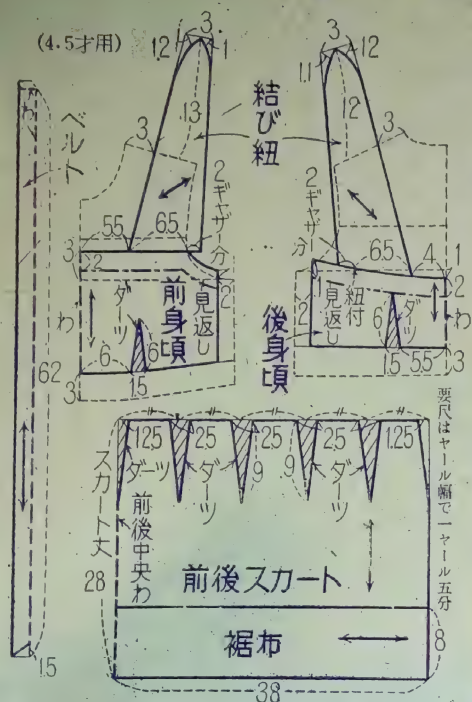 (4.5才用)
3
1.2
1
13
3
結び紐
2ギャザー分
5.5
6.5
3
2
2
前身頃
見返し
わ
ダーツ
6
6
3
1.5
3
1.1
1.2
12
3
2ギャザー分
6.5
4
1
2
1
2
後身頃
見返し
紐付
6
ダーツ
わ
1.5
5.5
3
わ
ベルト
62
1.5
1.25
2.5
2.5
2.5
1.25
ダーツ
ダーツ
9
9
ダーツ
スカート丈
28
前後中央わ
前後スカート
裾布
8
38
要尺はヤール幅で一ヤール五分